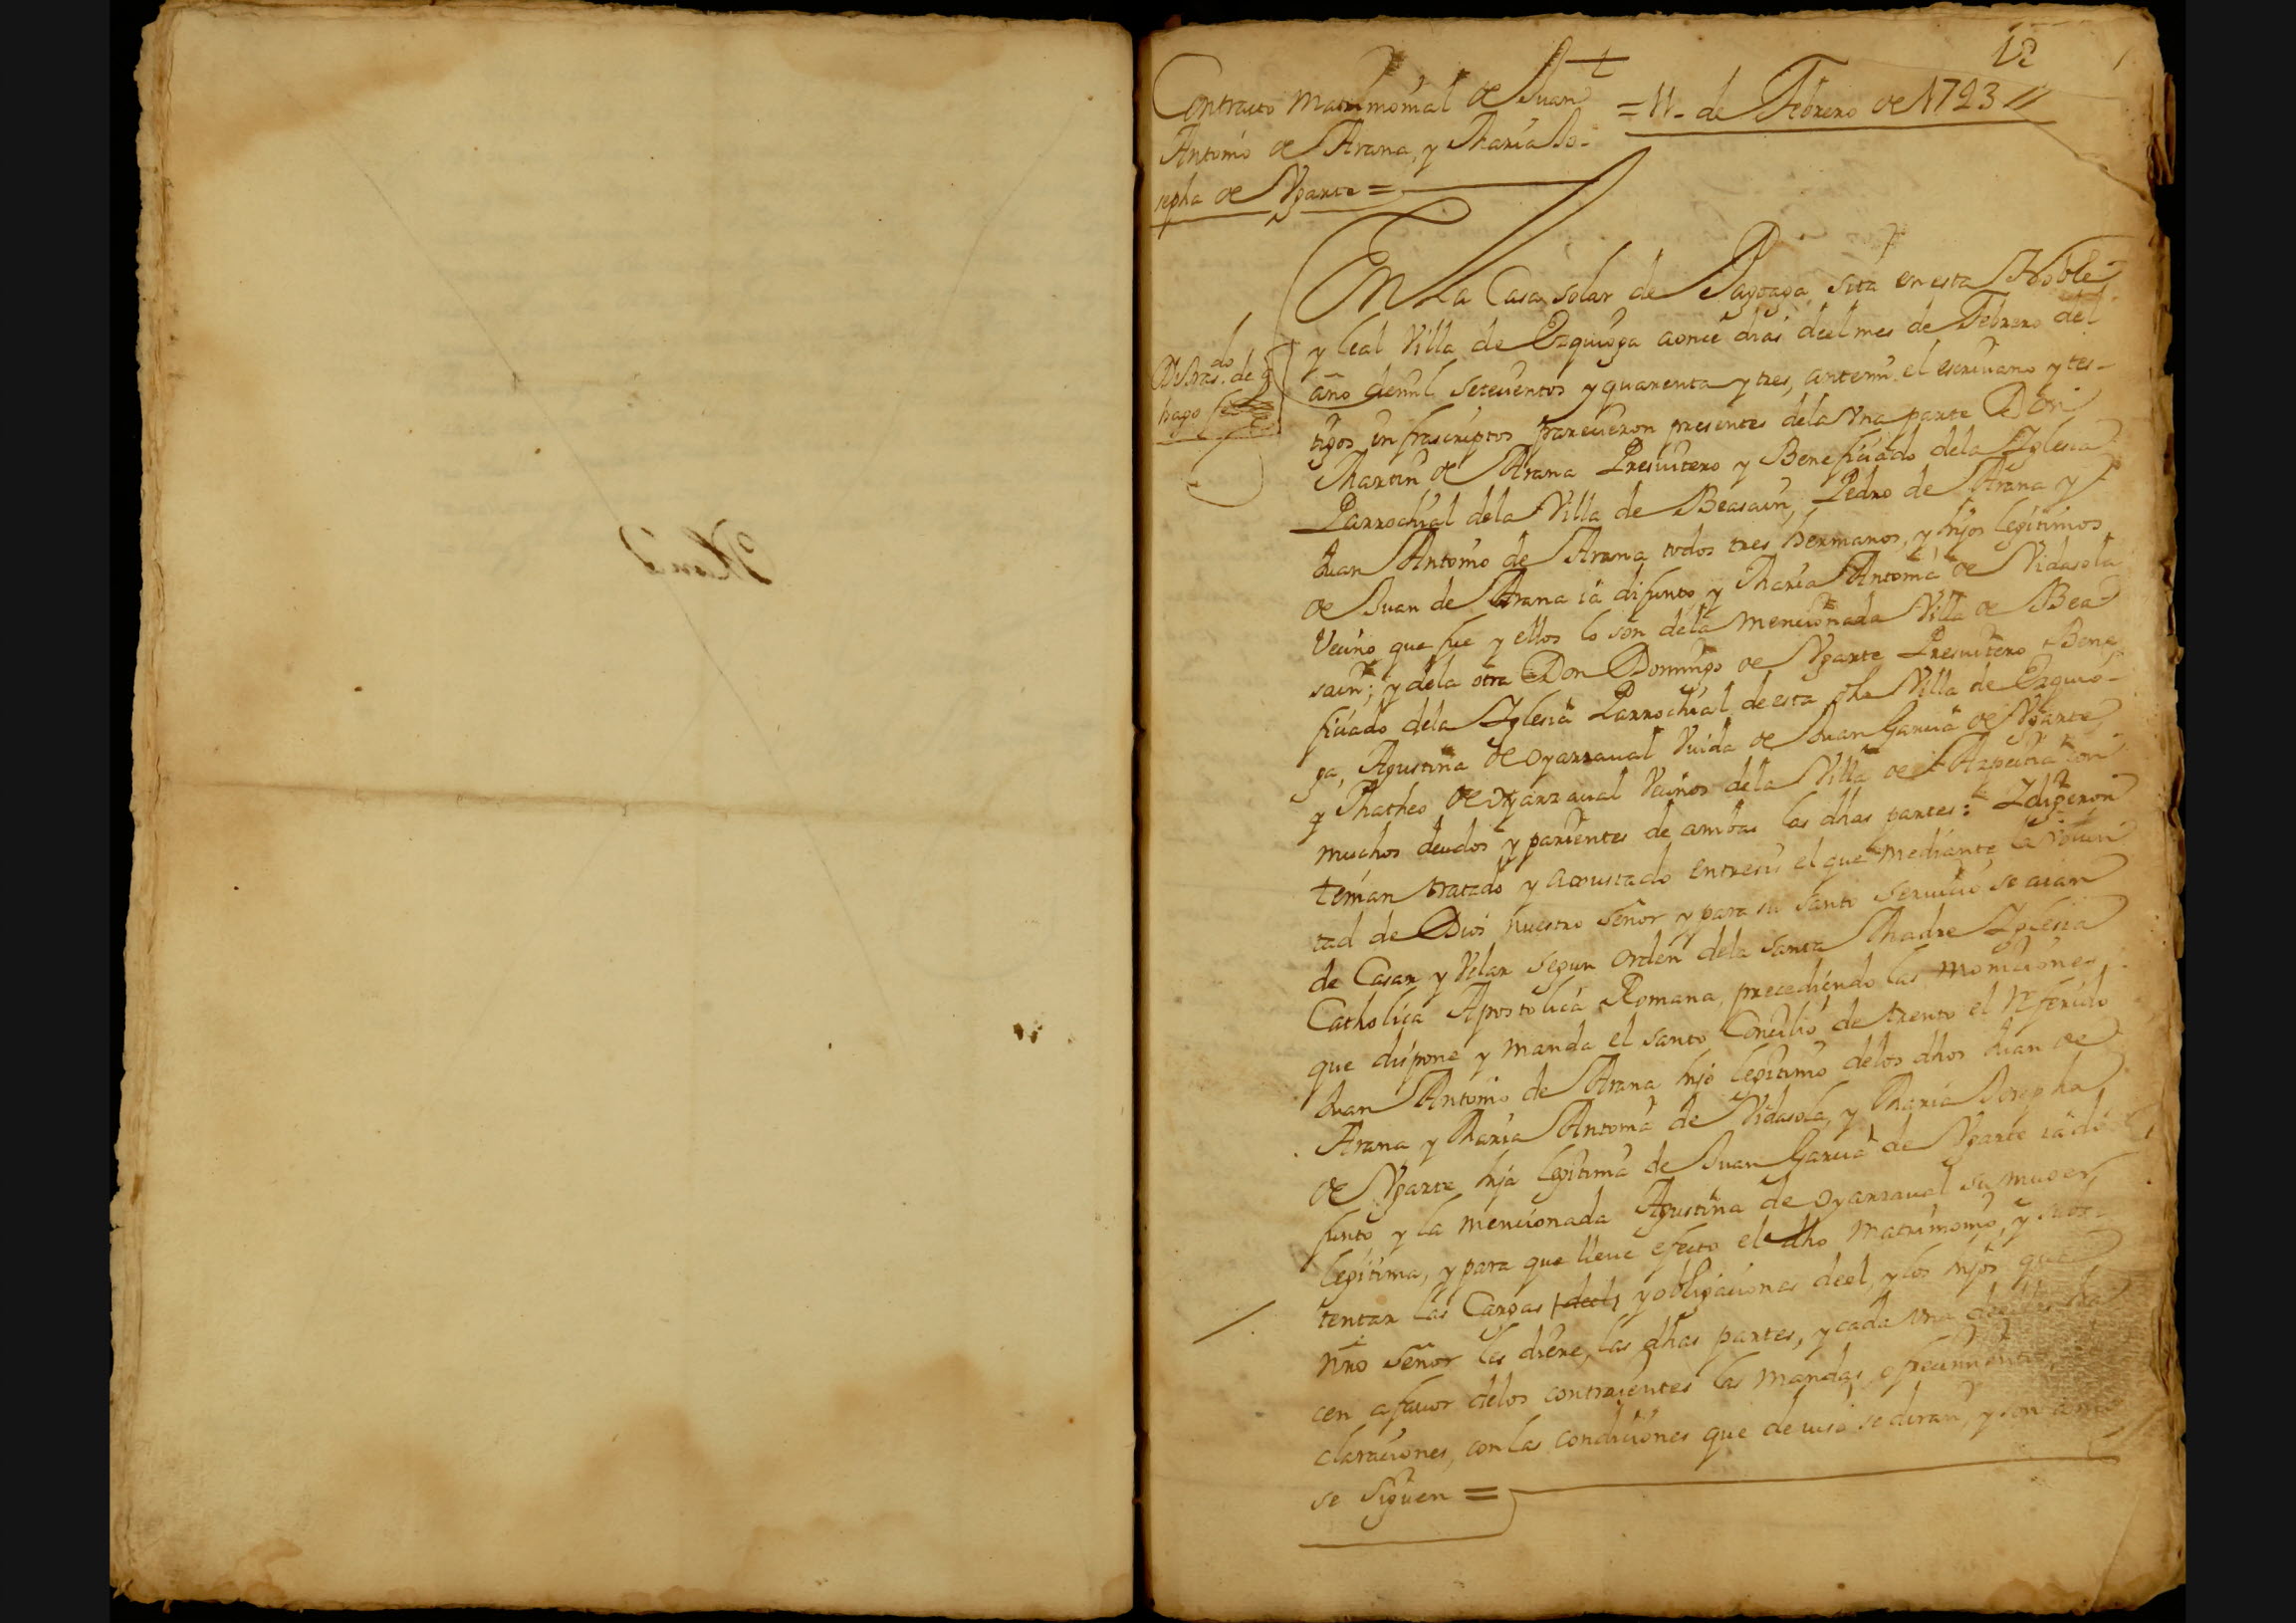 Contrato Matrimonial de Juan
Antonio de Arana, y Maria Jo-
sepha de Vgarte =
= 11 - de Febrero de 1743 //
En La Casa solar de Pagoaga sita en esta Noble
y leal Villa de Ezquioga a once dias del mes de Febrero del
año de mil setecientos y quarenta y tres, ante mi el escriuano y tes-
tigos infrascriptos parecieron presentes de la Vna parte Don
Martin de Arana Presuitero y Beneficiado de la Iglesia
Parrochial de la Villa de Beasain, Pedro de Arana y
Juan Antonio de Arana todos tres hermanos, y hijos legitimos
de Juan de Arana ia difunto y Maria Antonia de Vidasola
Vecino que fue y ellos lo son de la mencionada Villa de Bea-
sain; y de la otra Don Domingo de Vgarte Presuitero y Bene-
ficiado de la Iglesia Parrochial de esta dha Villa de Ezquio-
ga, Agustina de Oyarzaual Viuda de Juan Garcia de Vgarte,
y Matheo de Oyarzaual Vecinos de la Villa de Azpeitia con
muchos deudos y parientes de ambas las dhas partes: Y digeron
tenian tratado y aiustado entre si el que mediante la volun
tad de Dios nuestro Señor y para su santo seruicio se aian
de Casar y Velar segun orden de la Santa Madre Iglesia
Catholica Apostolica Romana, precediendo las moniciones
que dispone y manda el santo Concilio de trento el referido
Juan Antonio de Arana hijo legitimo de los dhos Juan de
Arana y Maria Antonia de Vidasola, y Maria Josepha
de Vgarte hija legitima de Juan Garcia de Vgarte ia di-
funto y la mencionada Agustina de Oyarzaual su muger
legitima, y para que lleue efecto el dho Matrimonio, y sus-
tentar las Cargas del y obligaciones de el, y los hijos que
nro Señor les diere, las dhas partes, y cada vna de ellas ha
cen a fauor de los contraientes las mandas, ofrecimientos,
claraciones, con las condiciones que de iuso se diran, y son como
se siguen =